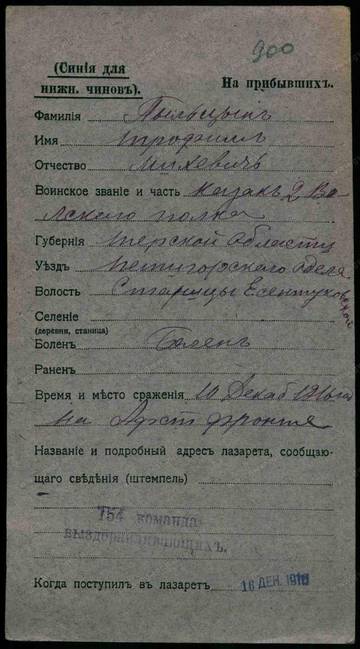 900
(Синія для
нижн. чиновъ).
На прибывшихъ.
Фамилія Пыльцынъ
Имя Трофимъ
Отчество Михевичъ
Воинское званіе и часть казакъ 2 Во
лскаго полка
Губернія Терской области
Уѣздъ Пятигорскаго отдела
Волость Станицы Есентуковской
Селеніе
(деревня, станица)
Боленъ Боленъ
Раненъ
Время и мѣсто сраженія 10 Декаб 1916 года
на фронте
Названіе и подробный адресъ лазарета, сообщаю-
щаго свѣдѣнія (штемпель)
154 команда
выздоравливающихъ.
Когда поступилъ въ лазаретъ 16 ДЕК. 1916